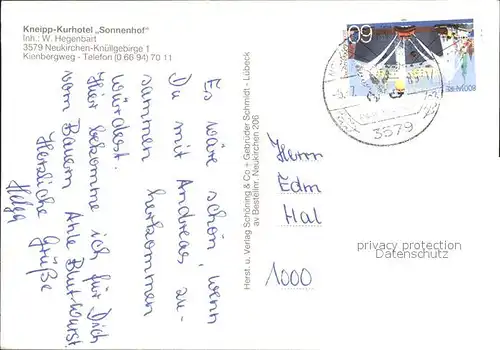 Kneipp-Kurhotel „Sonnenhof"
Inh.: W. Hegenbart
3579 Neukirchen-Knüllgebirge 1
Kienbergweg - Telefon (0 66 94) 70 11
Es wäre schön, wenn
Du mit Andreas zu-
sammen herkommen
würdest.
Hier bekomme ich für Dich
vom Bauern Ahle Blutwurst.
Herzliche Grüße
Helga
Herst. u. Verlag Schöning & Co + Gebrüder Schmidt - Lübeck
av Bestellnr. Neukirchen 206
60
3579
Herrn
Edm
Hal
1000
privacy protection
Datenschutz